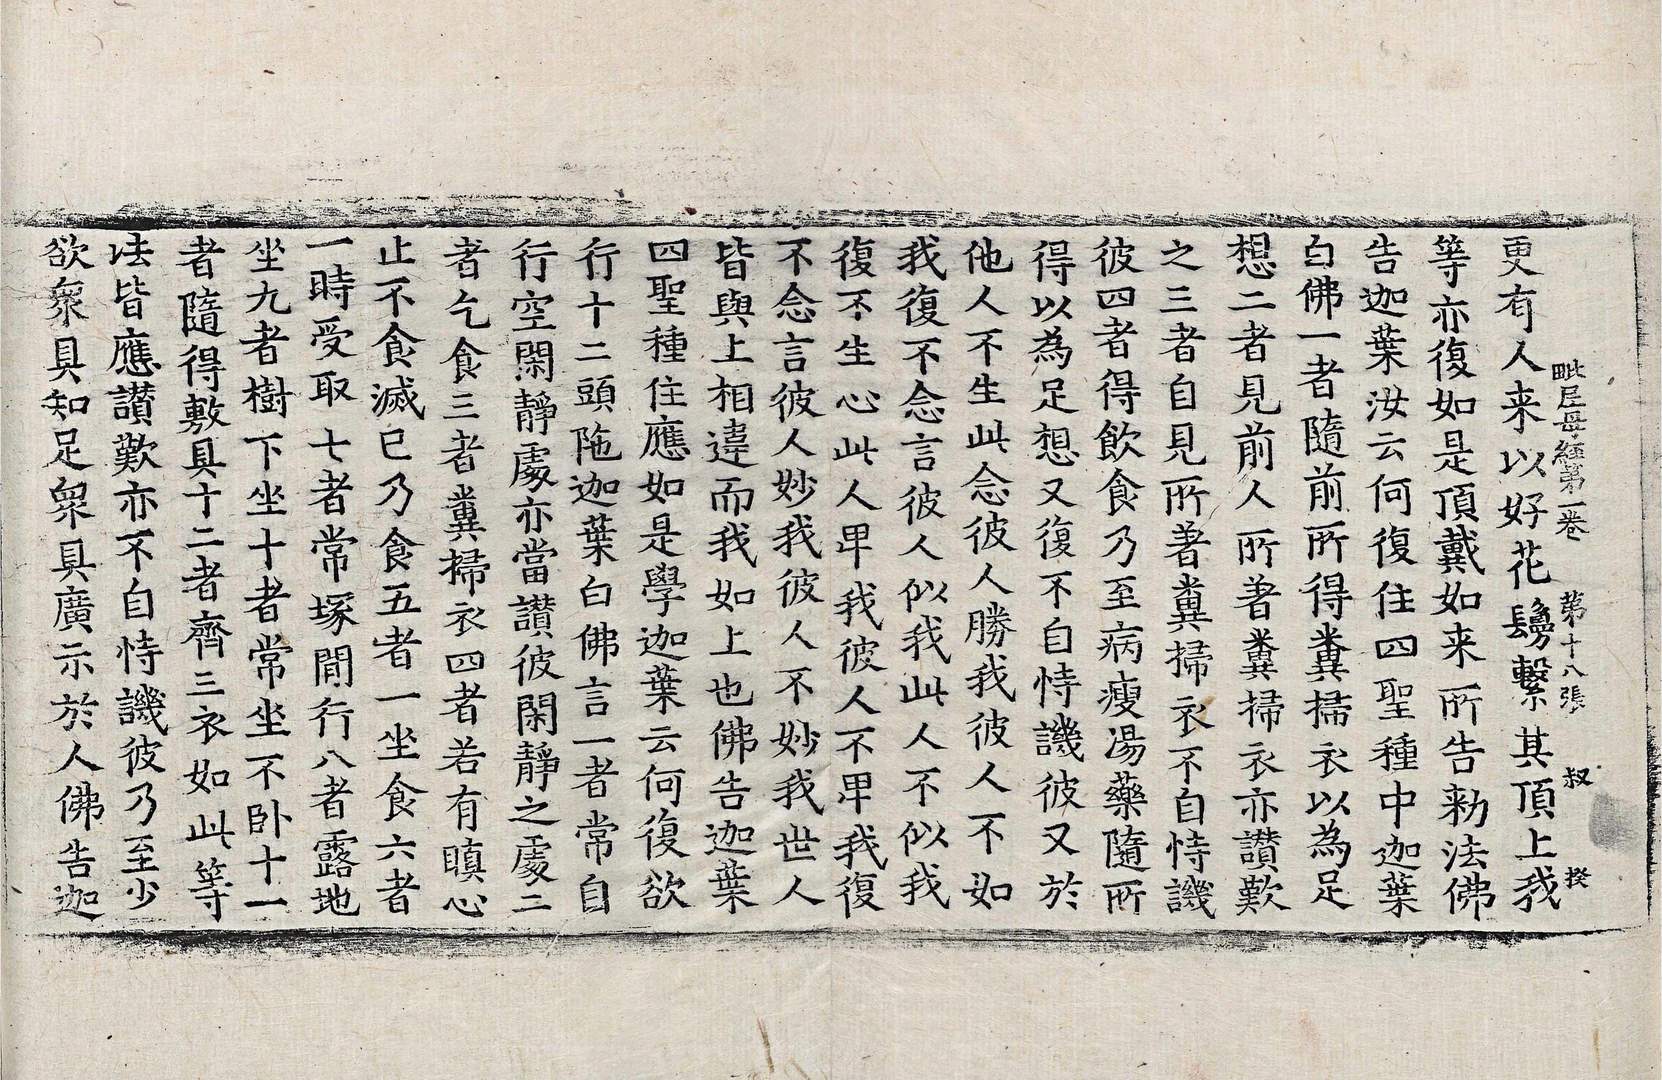 毗尼母經第一卷 第十八張 叔 揆
更有人来以好花鬘繫其頂上我
等亦復如是頂戴如来所告勑法佛
告迦葉汝云何復住四聖種中迦葉
白佛一者隨前所得糞掃衣以為足
想二者見前人所著糞掃衣亦讃歎
之三者自見所著糞掃衣不自恃譏
彼四者得飲食乃至病瘦湯藥隨所
得以為足想又復不自恃譏彼又於
他人不生此念彼人勝我彼人不如
我復不念言彼人似我此人不似我
復不生心此人卑我彼人不卑我復
不念言彼人妙我彼人不妙我世人
皆與上相違而我如上也佛告迦葉
四聖種住應如是學迦葉云何復欲
行十二頭陁迦葉白佛言一者常自
行空閑靜處亦當讃彼閑靜之處二
者乞食三者糞掃衣四者若有瞋心
止不食滅已乃食五者一坐食六者
一時受取七者常塚間行八者露地
坐九者樹下坐十者常坐不卧十一
者隨得敷具十二者齊三衣如此等
法皆應讃歎亦不自恃譏彼乃至少
欲衆具知足衆具廣示於人佛告迦